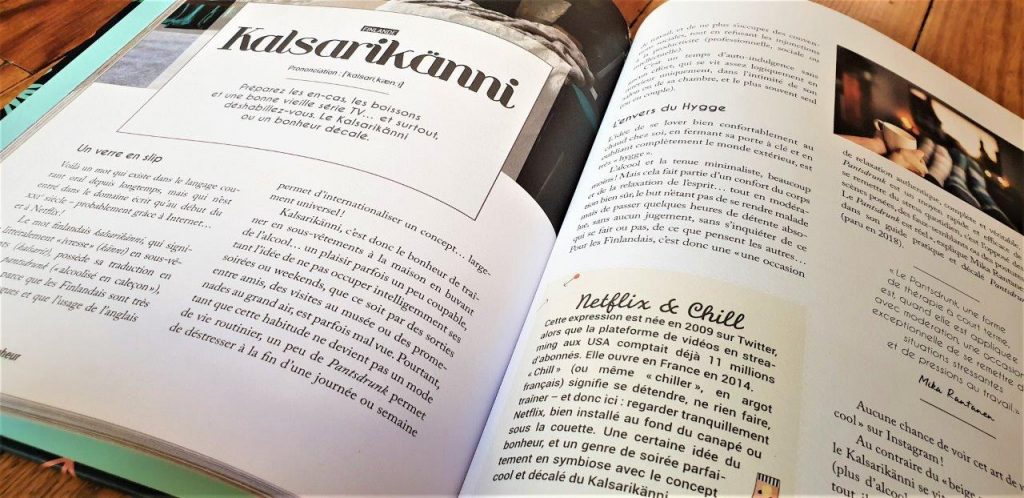 FINLANDE
Kalsarikänni
Prononciation : ['kalsari,kæn:i]
Préparez les en-cas, les boissons
et une bonne vieille série TV... et surtout,
déshabillez-vous. Le Kalsarikänni
ou un bonheur décalé.
Un verre en slip
Voilà un mot qui existe dans le langage cou-
rant oral depuis longtemps, mais qui n'est
entré dans le domaine écrit qu'au début du
XXIe siècle – probablement grâce à Internet...
et à Netflix !
Le mot finlandais kalsarikänni, qui signi-
littéralement « ivresse » (känni) en sous-vê-
(kalsarit), possède sa traduction en
pantsdrunk (« alcoolisé en caleçon »),
parce que les Finlandais sont très
gues et que l'usage de l'anglais
permet d'internationaliser un concept... large-
ment universel !
Kalsarikänni, c'est donc le bonheur de traî-
ner en sous-vêtements à la maison en buvant
de l'alcool... un plaisir parfois un peu coupable,
tant l'idée de ne pas occuper intelligemment ses
soirées ou weekends, que ce soit par des sorties
entre amis, des visites au musée ou des prome-
nades au grand air, est parfois mal vue. Pourtant,
tant que cette habitude ne devient pas un mode
de vie routinier, un peu de Pantsdrunk permet
de déstresser à la fin d'une journée ou semaine
nheur
de travail, et de ne plus s'occuper des conven-
sociales, tout en refusant les injonctions
productivité (professionnelle, sociale ou
C'est un temps d'auto-indulgence sans
aucun effort, qui se vit assez logiquement en
uniquement, dans l'intimité de son
ou de sa chambre, et le plus souvent seul
(ou en couple).
L'envers du Hygge
L'idée de se lover bien confortablement au
chaud chez soi, en fermant sa porte à clé et en
oubliant complètement le monde extérieur, est
très « hygge ».
L'alcool et la tenue minimaliste, beaucoup
moins ! Mais cela fait partie d'un confort du corps
et de la relaxation de l'esprit... tout en modéra-
tion bien sûr, le but n'étant pas de se rendre malade
mais de passer quelques heures de détente abso-
lue, sans aucun jugement, sans s'inquiéter de ce
qui se fait ou pas, de ce que pensent les autres...
Pour les Finlandais, c'est donc une « une occasion
Netflix & Chill
Cette expression est née en 2009 sur Twitter,
alors que la plateforme de vidéos en strea-
ming aux USA comptait déjà 11 millions
d'abonnés. Elle ouvre en France en 2014.
« Chill » (ou même « chiller », en argot
français) signifie se détendre, ne rien faire,
traîner – et donc ici : regarder tranquillement
Netflix, bien installé au fond du canapé ou
sous la couette. Une certaine idée du
bonheur, et un genre de soirée parfai-
tement en symbiose avec le concept
cool et décalé du Kalsarikänni
de relaxation authentique, complète et véritable.
Pantsdrunk est un moyen rapide et efficace de
se remettre du stress quotidien, sans mises en
scène, posées, des faux-semblants, des postures.
Le Pantsdrunk est réel », explique Mika Rantanen
dans son guide pratique et décalé Pantsdrunk
(paru en 2018).
« Le Pantsdrunk, une forme
de thérapie à court terme,
quand elle est pratiquée
avec modération, une occasion
exceptionnelle de se remettre de
situations stressantes
et de pressions au travail. »
Mika Rantanen
Aucune chance de voir cet art de v
cool » sur Instagram !
Au contraire du « beige
le Kalsarikänni se
(plus d'alcool
tout : il